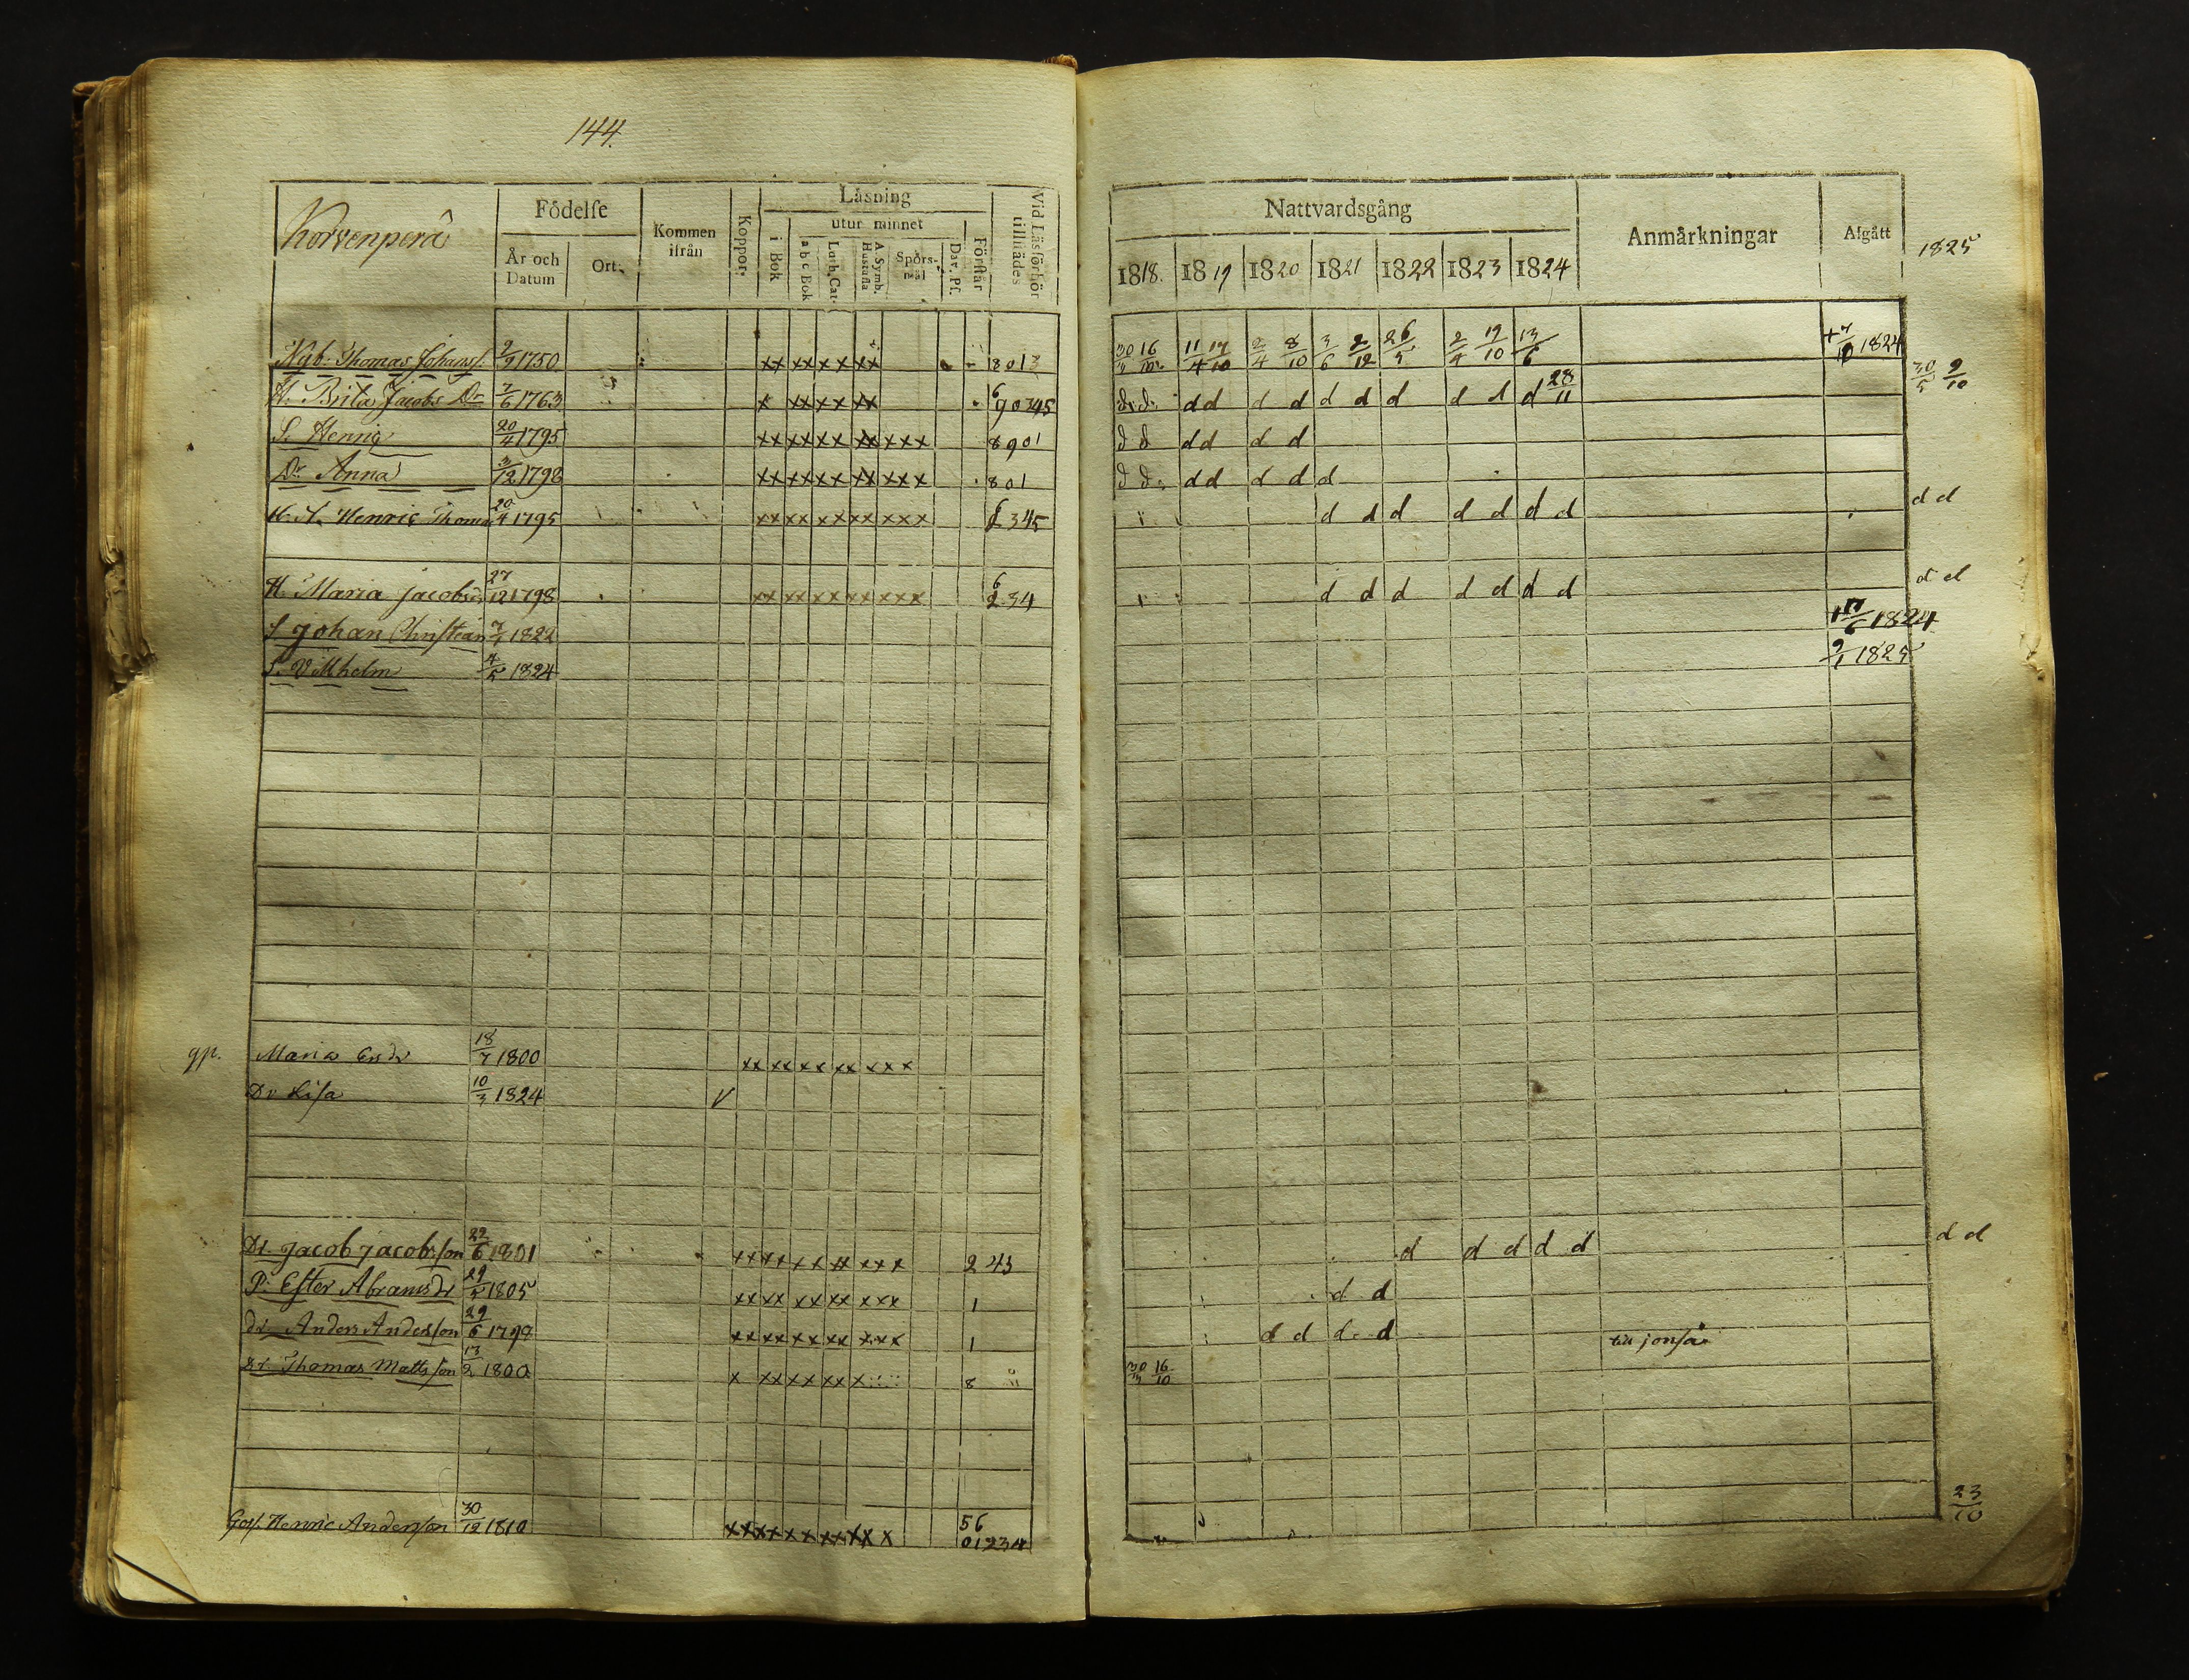 144.
Korvenperä
Födelse
År och Datum
Ort.
Kommen ifrån
Koppor.
Läsning
i Bok
utur minnet
a b c Bok
Luth. Cat.
A. Symb. Hustafla
Spörsmål
Dav. Ps.
Förstår
Vid Läsförhör tillstädes
Nyb. Thomas Johans s. 2/9 1750 xx xx xx xx 8 0 1 3
H. Brita Jacobs Dr 7/6 1763 x xx xx xx 6 9 0 345
S. Henric 20/4 1795 xx xx xx xx xxx 8 9 0 1
Dr Anna 3/12 1798 xx xx xx xx xxx 8 0 1
Henric Thoms 20/4 1795 xx xx xx xx xxx 345
H. Maria Jacobsdr 27/12 1798 xx xx xx xx xxx 6 2 34
S Johan Christean 7/1 1822
S. Vilhelm 4/5 1824
gp. Maria Ersdr 18/7 1800 xx xx xx xx xxx
Dr Lisa 10/3 1824 V
Dr. Jacob Jacobsson 22/6 1801 xx xx xx xx xxx 2 43
P. Ester Abramsdr 29/5 1805 xx xx xx xx xxx 1
dr. Anders Andersson 29/6 1799 xx xx xx xx xxx 1
Dr. Thomas Mattsson 13/2 1800 x xx xx xx x 8
Goss. Henric Andersson 30/12 1810 xx xx xx xx xx x 56
01234
Nattvardsgång
Anmärkningar
Afgått
1818. 1819 1820 1821 1822 1823 1824
1825
30 16/10 11/4 17/10 2/4 8/10 3/6 2/12 26/5 2/4 19/10 13/6 + 7/10 1824
30/5 9/10
d. d. d d d d d d d d d d 28/11
d d d d d d
d d. d d d d d
d d d d d d d d d
d d d d d d d d d
+ 17/6 1824
9/1 1825
d d d d d d d
d d
d d d. d till jonsä
30/3 16/10
23/10